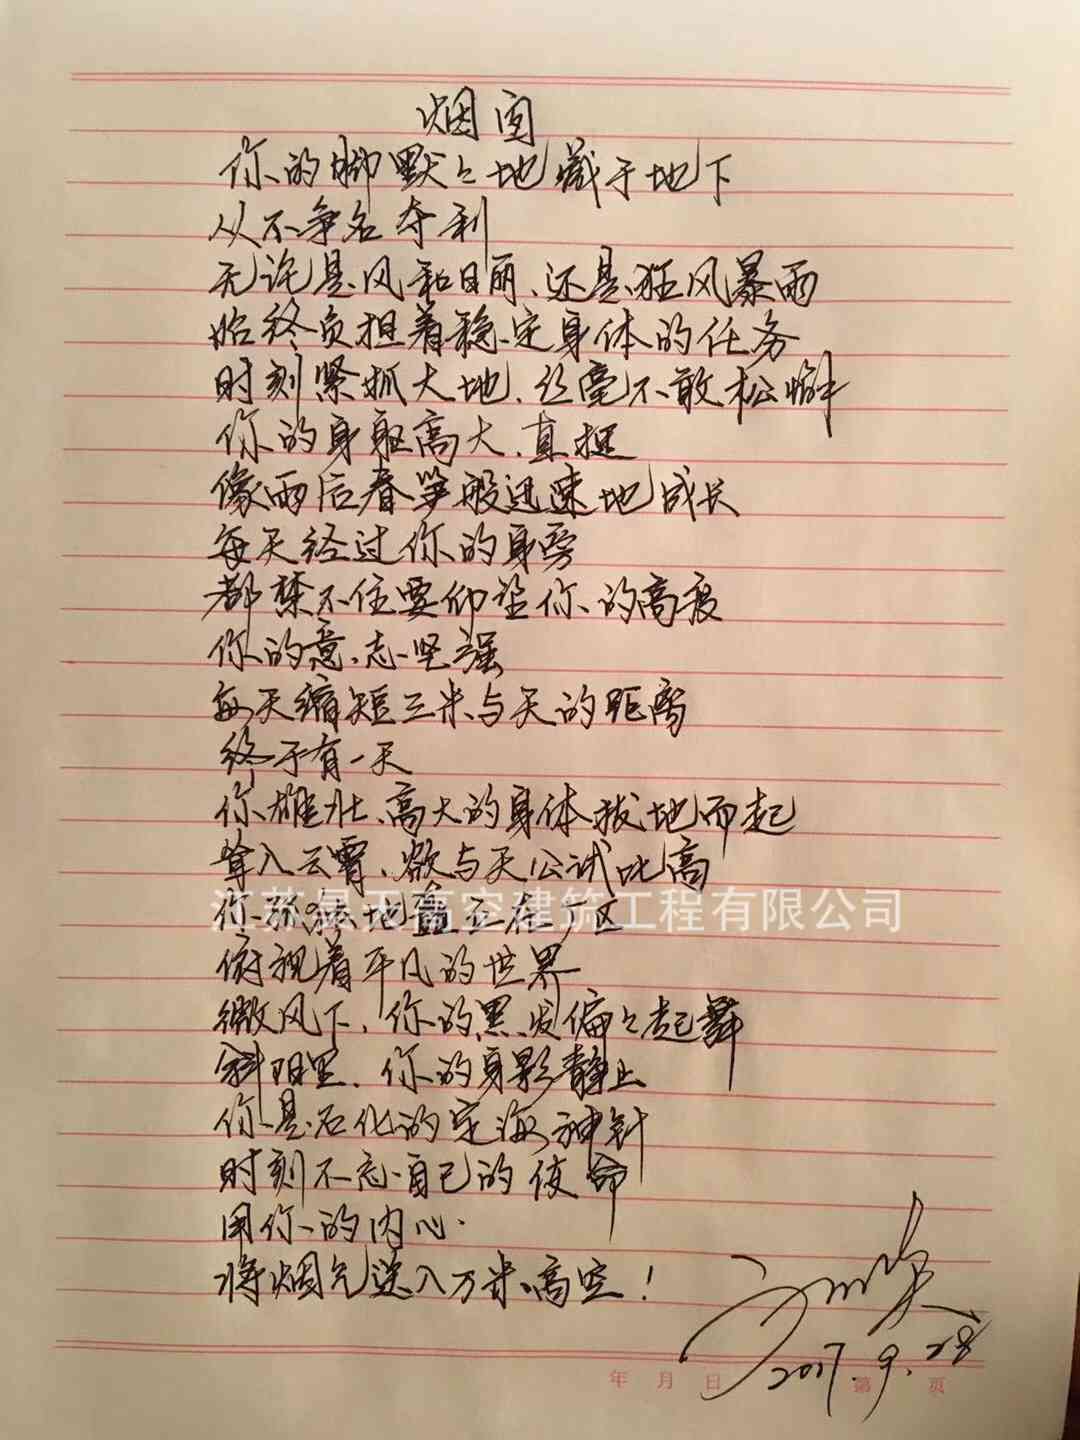 烟囱
你的脚默々地藏于地下
从不争名夺利
无许是风和日丽、还是狂风暴雨
始终负担着稳定身体的任务
时刻紧抓大地、丝毫不敢松懈
你的身躯高大、直挺
像雨后春笋般迅速地成长
每天经过你的身旁
都禁不住要仰望你的高度
你的意志坚强
每天缩短三米与天的距离
终于有一天
你雄壮、高大的身体拔地而起
耸入云霄、欲与天公试比高
你孤独地矗立在厂区
江苏 高空建筑工程有限公司
俯视着平凡的世界
微风下、你的黑发偏々起舞
斜阳里、你的身影静止
你是石化的定海神针
时刻不忘自己的使命
用你的内心
将烟气送入万米高空！
2017.9.28
年 月 日 第 页